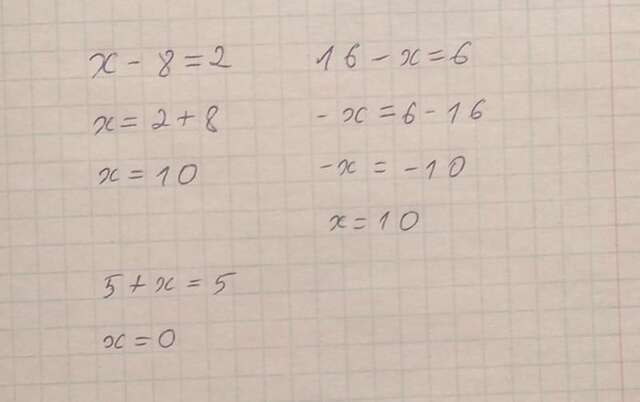 x - 8 = 2
x = 2 + 8
x = 10
16 - x = 6
- x = 6 - 16
- x = - 10
x = 10
5 + x = 5
x = 0